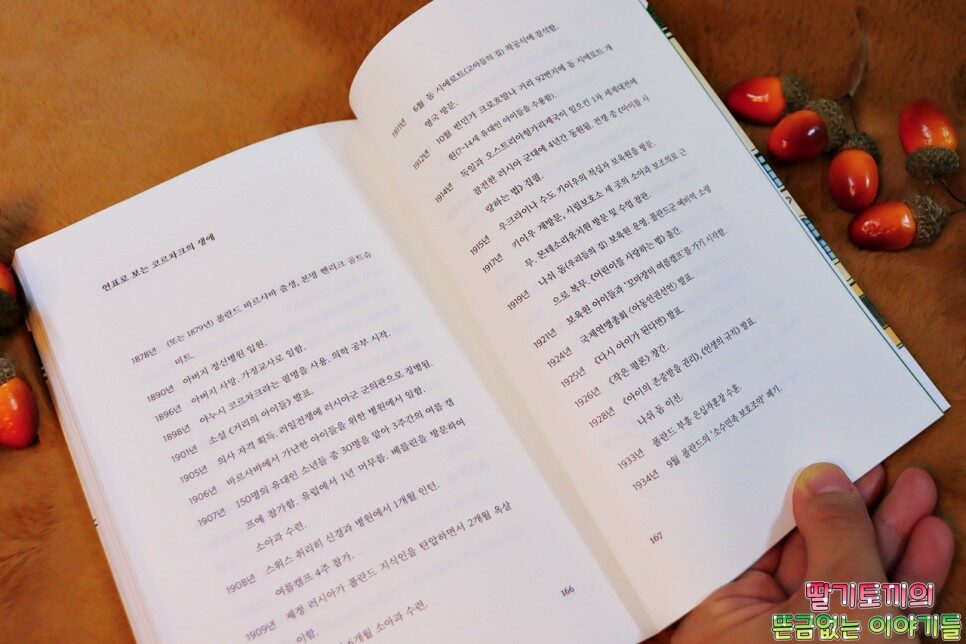 연표로 보는 코르차크의 생애
1878년 (또는 1879년) 폴란드 바르샤바 출생, 본명 헨리크 골트슈
미트.
1890년 아버지 정신병원 입원.
1896년 아버지 사망. 가정교사로 일함.
1898년 야누시 코르차크라는 필명을 사용. 의학 공부 시작.
1901년 소설 《거리의 아이들》 발표.
1905년 의사 자격 획득. 러일전쟁에 러시아군 군의관으로 징병됨.
1906년 바르샤바에서 가난한 아이들을 위한 병원에서 일함.
1907년 150명의 유대인 소년들 중 30명을 맡아 3주간의 여름 캠
프에 참가함. 유럽에서 1년 머무름. 베를린을 방문하여
소아과 수련.
1908년 스위스 취리히 신경과 병원에서 1개월 인턴.
여름캠프 4주 참가.
1909년 제정 러시아가 폴란드 지식인을 탄압하면서 2개월 옥살
이함.
6개월 소아과 수련.
166
6월 돔 시에로트(고아들의 집) 착공식에 참석함.
1911년 영국 방문.
1912년 10월 빈민가 크로흐말나 거리 92번지에 돔 시에로트 개
원(7-14세 유대인 아이들을 수용함).
1914년 독일과 오스트리아헝가리제국이 일으킨 1차 세계대전에
참전한 러시아 군대에 4년간 동원됨. 전쟁 중 《아이를 사
랑하는 법》 집필.
1915년 우크라이나 수도 키이우의 적십자 보육원을 방문.
1917년 키이우 재방문, 시립보호소 세 곳의 소아과 보조의로 근
무, 몬테소리유치원 방문 및 수업 참관.
1919년 나쉬 돔(우리들의 집) 보육원 운영. 폴란드군 예비역 소령
으로 복무. 《어린이를 사랑하는 법》 출간.
1921년 보육원 아이들과 '꼬마장미 여름캠프'를 가기 시작함.
1924년 국제연맹총회 〈아동인권선언〉 발표.
1925년 《다시 아이가 된다면》 발표.
1926년 《작은 평론》 창간.
1928년 《아이의 존중받을 권리》, 《인생의 규칙》 발표
나쉬 돔 이전.
1933년 폴란드 부흥 은십자훈장 수훈.
1934년 9월 폴란드의 '소수민족 보호조약' 폐기.
167
딸기토끼의
뜬금없는 이야기들